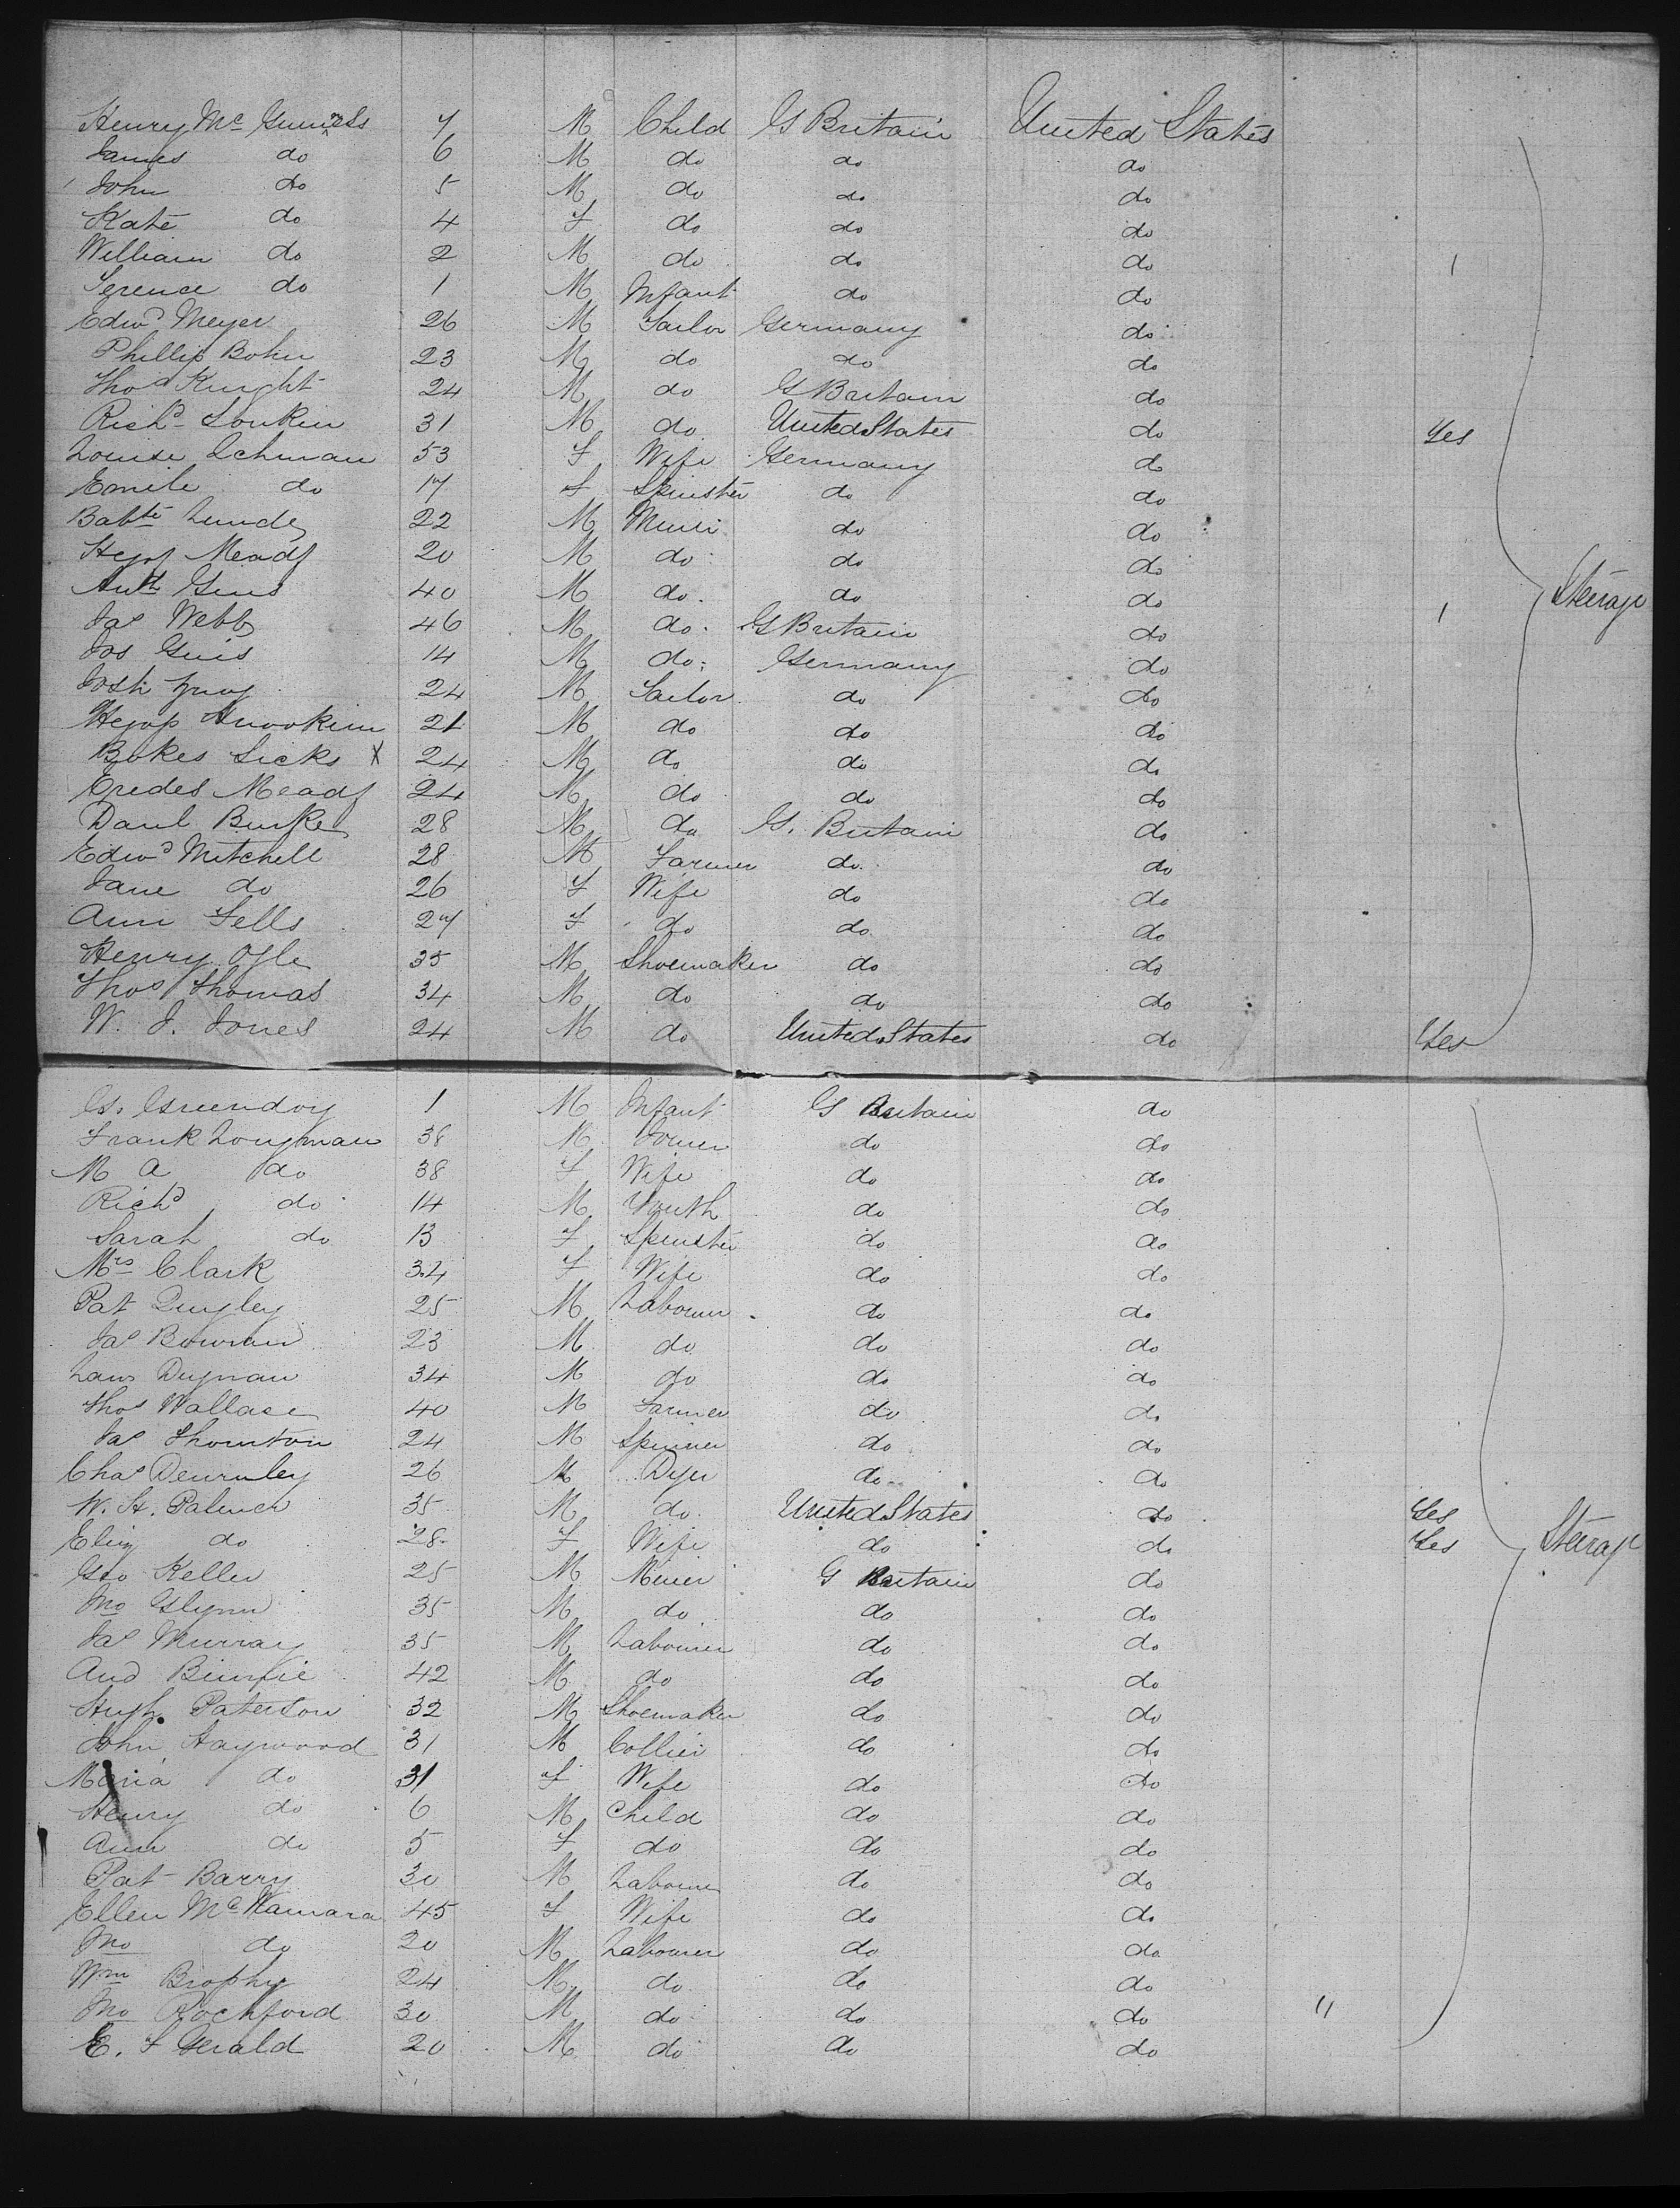 Henry Mc Guiness 7 M Child G Britain United States
James do 6 M do do do
John do 5 M do do do
Kate do 4 F do do do
William do 2 M do do do
Terence do 1 M Infant do do
Edwd Meyer 26 M Tailor Germany do
Phillip Bohn 23 M do do do
Thos Knight 24 M do G Britain do
Richd 31 M do United States do Yes
Louise Lehman 53 F Wife Germany do
Emile do 17 F Spinster do do
22 M do do
20 M do do do
40 M do do do
Jas Webb 46 M do G Britain do
Jos 14 M do Germany do
24 M Tailor do do
21 M do do do
Sicks X 24 M do do do
24 M do do do
Danl Burke 28 M do G. Britain do
Edwd Mitchell 28 M Farmer do do
Jane do 26 F Wife do do
Ann Fells 27 F do do do
Henry Ogle 35 M Shoemaker do do
Thos Thomas 34 M do do do
W. J. Jones 24 M do United States do Yes
Steerage
G. 1 M Infant G Britain do
Frank Longman 38 M Joiner do do
M A do 38 F Wife do do
Richd do 14 M Youth do do
Sarah do 13 F Spinster do do
Mrs Clark 34 F Wife do do
Pat Quigley 25 M Labourer do do
Jas Bowran 23 M do do do
Laws Dignan 34 M do do do
Thos Wallace 40 M Farmer do do
Jas Thornton 24 M Spinner do do
Chas Dearnley 26 M Dyer do do
W. H. Palmer 35 M do United States do Yes
Eliz do 28 F Wife do do Yes
Geo Keller 25 M Miner G Britain do
Jno Glynn 35 M do do do
Jas Murray 35 M Labourer do do
And Binnie 42 M do do do
Hugh Paterson 32 M Shoemaker do do
John Haywood 31 M Collier do do
Maria do 31 F Wife do do
Henry do 6 M Child do do
Ann do 5 F do do do
Pat Barry 30 M Labourer do do
Ellen McNamara 45 F Wife do do
Jno do 20 M Labourer do do
Wm Brophy 24 M do do do
Jno Rochford 30 M do do do "
E. F Gerald 20 M do do do
Steerage